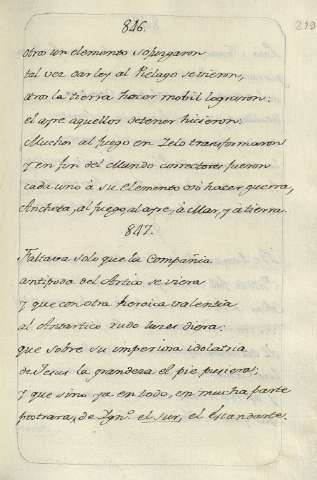 846.
219
otros un elemento sojuzgaron
tal vez dar ley al Pielago se vieron,
otros la tierra hacer mobil lograron:
el ayre aquellos detener hicieron.
Muchos al fuego en Zelo transformaron
y en fin del Mundo correctores fueron
cada uno à su elemento osò hacer guerra,
Ancheta, al fuego, al ayre, à Mar, y à tierra.
847.
Faltava solo que la Compañia
antipoda del Artico se viera
y que con otra heroica valentia
al Antartico rudo luzes diera.
que sobre su imperiosa idolatria
de Jesus la grandeza el pie pusiera;
y que sino ya en todo, en mucha parte
postrara, de Ignº. el sur, el Estandarte.